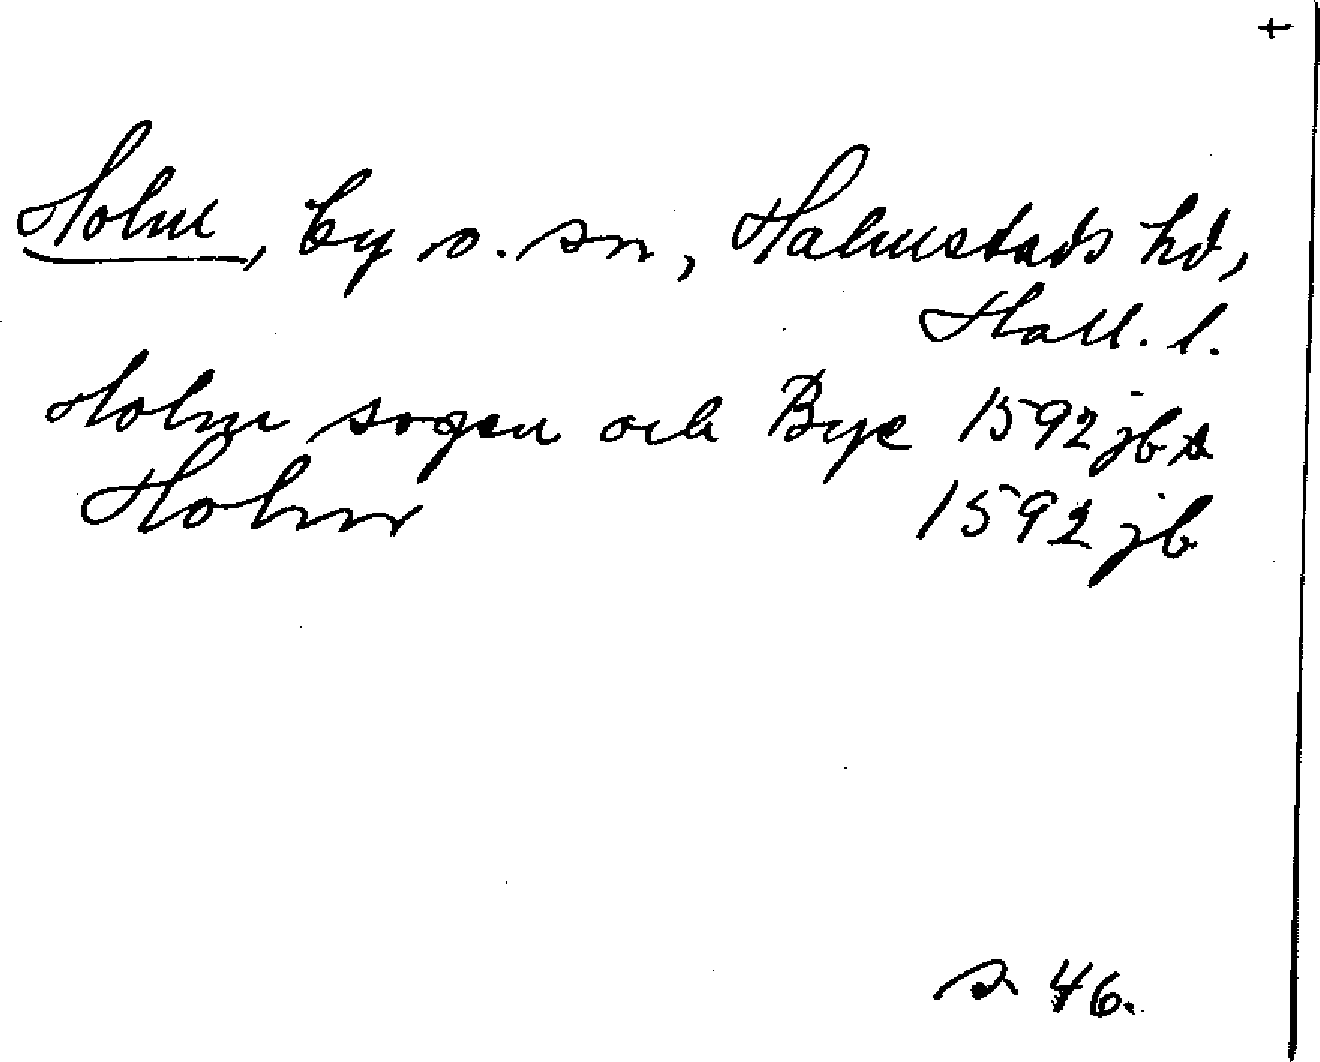 +
Holm, by o. sn, Halmstads hd,
Hall. l.
Holm sogen och Bye 1592 jb s
Holm 1592 jb
s 46.